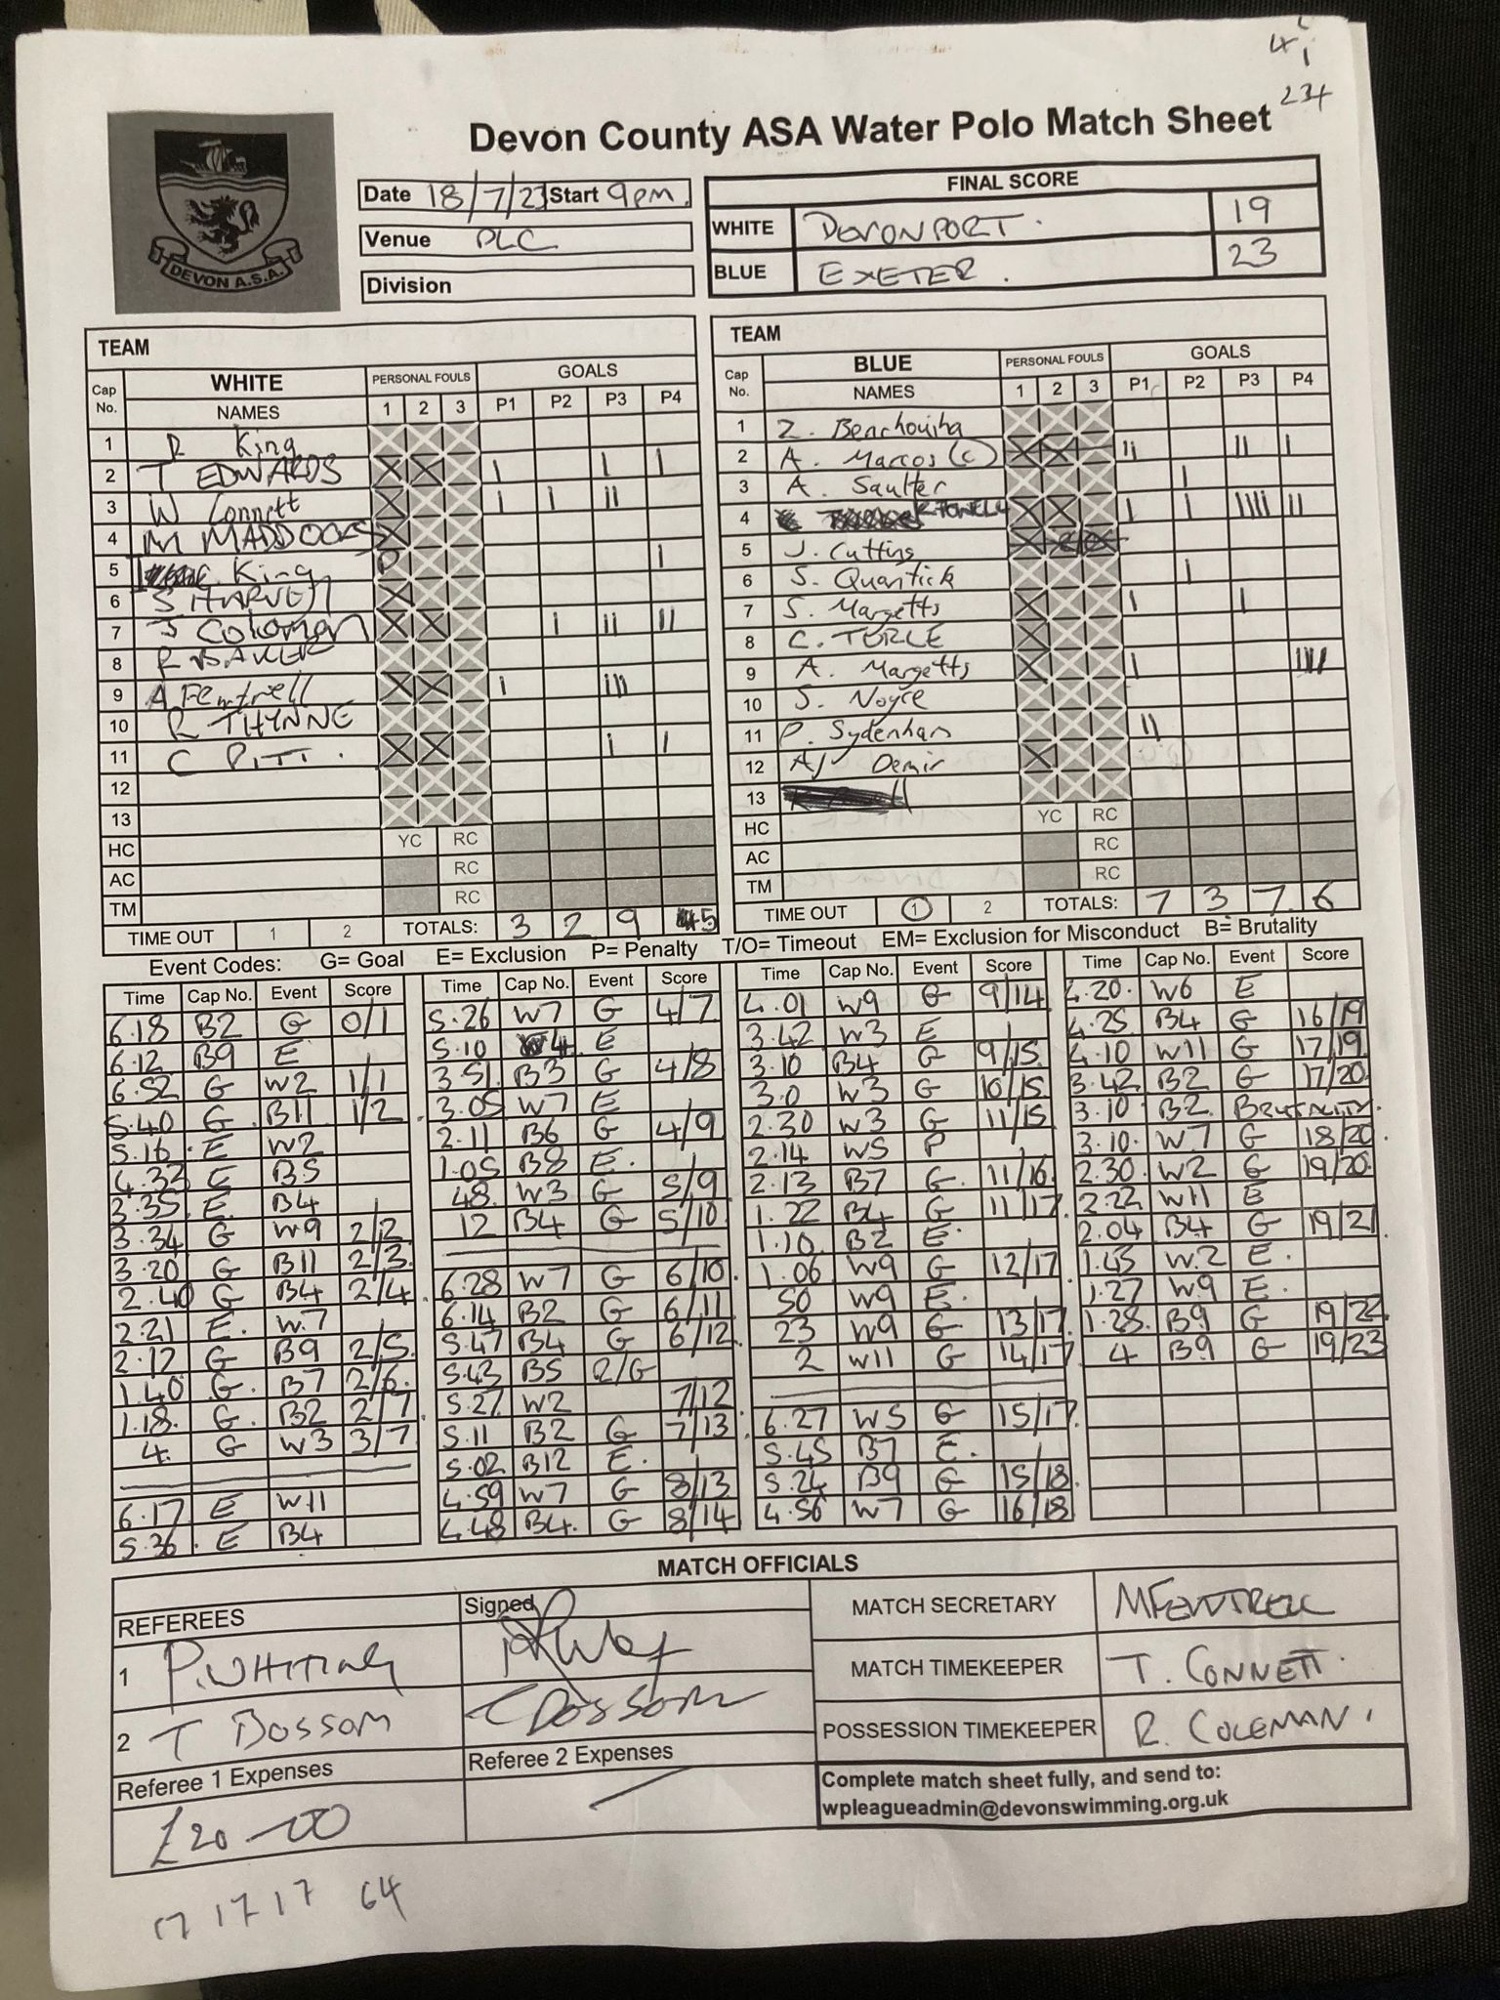 234
Devon County ASA Water Polo Match Sheet
DEVON A.S.A.
Date 18/7/23 Start 9pm.
Venue PLC
Division
FINAL SCORE
WHITE DEVONPORT. 19
BLUE EXETER. 23
TEAM
Cap No. WHITE PERSONAL FOULS GOALS
NAMES 1 2 3 P1 P2 P3 P4
1 R King
2 T EDWARDS X X I I I
3 W Connett X I I II
4 M MADDOCKS X
5 King P I
6 S HARVEY X
7 J Coloman X X I II II
8 R BAKER
9 A Fentrell X X I III
10 R THYNNE
11 C PITT. X X I I
12
13
HC YC RC
AC RC
TM RC
TIME OUT 1 2 TOTALS: 3 2 9 5
TEAM
Cap No. BLUE PERSONAL FOULS GOALS
NAMES 1 2 3 P1 P2 P3 P4
1 Z. Benchouiha
2 A. Marcos (c) X X II II I
3 A. Saulter I
4 R TOWELL X X I I IIII II
5 J. Cutting X
6 S. Quantick I
7 S. Margetts X I I
8 C. TURLE X
9 A. Margetts X I III
10 S. Noyce
11 P. Sydenham II
12 AJ Demir X
13
HC YC RC
AC RC
TM RC
TIME OUT 1 2 TOTALS: 7 3 7 6
Event Codes: G= Goal E= Exclusion P= Penalty T/O= Timeout EM= Exclusion for Misconduct B= Brutality
Time Cap No. Event Score
6.18 B2 G 0/1
6.12 B9 E
6.52 G W2 1/1
5.40 G B11 1/2
5.16 E W2
4.33 E B5
3.35 E B4
3.34 G W9 2/2
3.20 G B11 2/3
2.40 G B4 2/4
2.21 E. W.7
2.12 G B9 2/5
1.40 G. B7 2/6
1.18. G. B2 2/7
4. G W3 3/7
6.17 E W11
5.36 E B4
Time Cap No. Event Score
5.26 W7 G 4/7
5.10 W4 E
3.51 B3 G 4/8
3.05 W7 E
2.11 B6 G 4/9
1.05 B8 E.
48 W3 G 5/9
12 B4 G 5/10
6.28 W7 G 6/10
6.14 B2 G 6/11
5.47 B4 G 6/12
5.43 B5 2/G
5.27 W2 7/12
5.11 B2 G 7/13
5.02 B12 E.
4.59 W7 G 8/13
4.48 B4. G 8/14
Time Cap No. Event Score
4.01 W9 G 9/14
3.42 W3 E
3.10 B4 G 9/15
3.0 W3 G 10/15
2.30 W3 G 11/15
2.14 W5 P
2.13 B7 G. 11/16
1.22 B4 G 11/17
1.10 B2 E.
1.06 W9 G 12/17
50 W9 E.
23 W9 G 13/17
2 W11 G 14/17
6.27 W5 G 15/17
5.45 B7 E.
5.24 B9 G 15/18
4.56 W7 G 16/18
Time Cap No. Event Score
4.20. W6 E
4.25 B4 G 16/19
4.10 W11 G 17/19
3.42 B2 G 17/20
3.10 B2 BRUTALITY.
3.10. W7 G 18/20
2.30. W2 G 19/20
2.22 W11 E
2.04 B4 G 19/21
1.45 W.2 E.
1.27 W9 E.
1.28. B9 G 19/22
4 B9 G 19/23
MATCH OFFICIALS
REFEREES Signed
1 P. WHITING
2 T Bossom
T Bossom
Referee 1 Expenses Referee 2 Expenses
£20-00
MATCH SECRETARY MFENTRELL
MATCH TIMEKEEPER T. CONNETT.
POSSESSION TIMEKEEPER R. COLEMAN.
Complete match sheet fully, and send to:
wpleagueadmin@devonswimming.org.uk
17 17 17 64